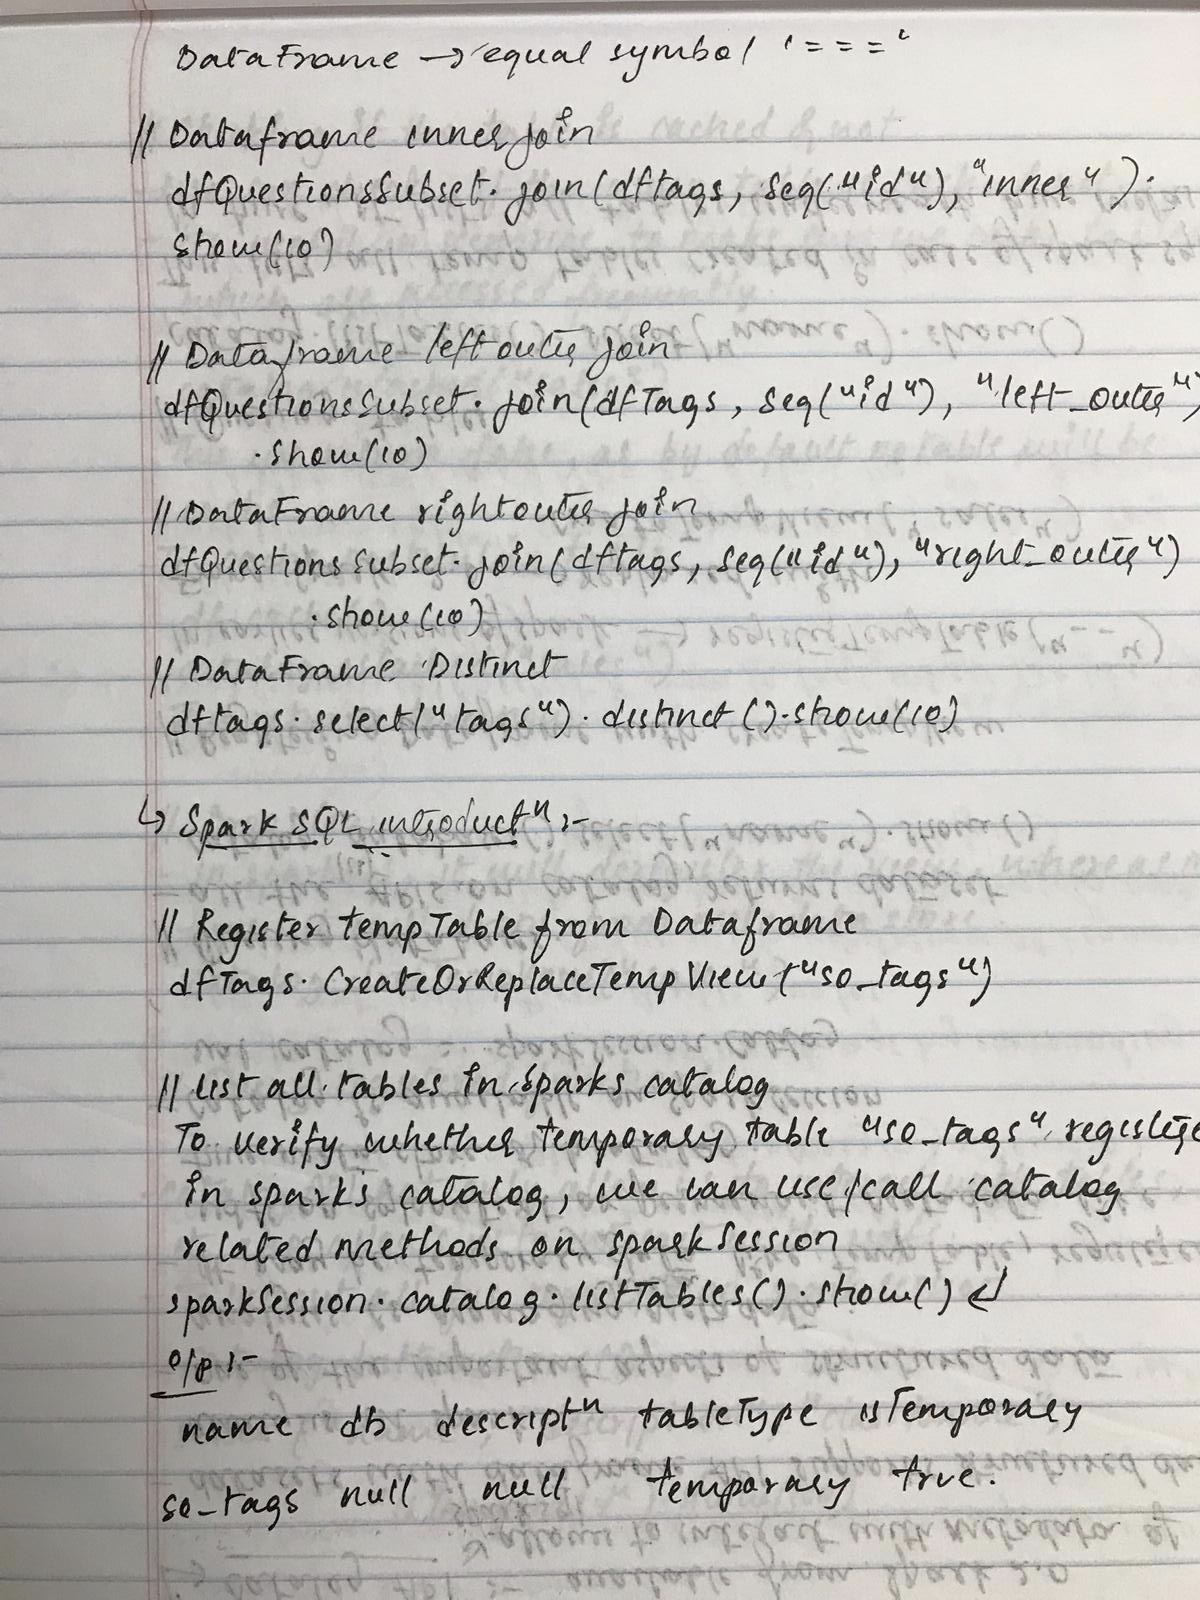 DataFrame → equal symbol '==='
// Dataframe inner join
dfQuestionsSubset.join(dftags, seq("id"), "inner").
show(10)
// Dataframe left outer join
dfQuestionsSubset.join(dfTags, seq("id"), "left_outer")
.show(10)
// DataFrame right outer join
dfQuestionsSubset.join(dftags, seq("id"), "right_outer")
.show(10)
// DataFrame Distinct
dftags.select("tags").distinct().show(10)
↳ Spark SQL introductⁿ :-
// Register temp Table from Dataframe
dfTags.CreateOrReplaceTempView("so_tags")
// List all tables in Sparks catalog
To verify whether temporary table "so_tags" registere
in spark's catalog, we can use/call catalog
related methods on sparkSession
sparkSession.catalog.listTables().show() ↵
o/p :-
name db descriptⁿ tableType isTemporary
so_tags null null temporary true.